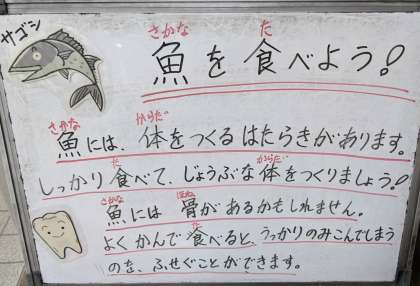 サゴシ
魚を食べよう!
魚には、体をつくるはたらきがあります。
しっかり食べて、じょうぶな体をつくりましょう!
魚には骨があるかもしれません。
よくかんで食べると、うっかりのみこんでしまう
のを、ふせぐことができます。